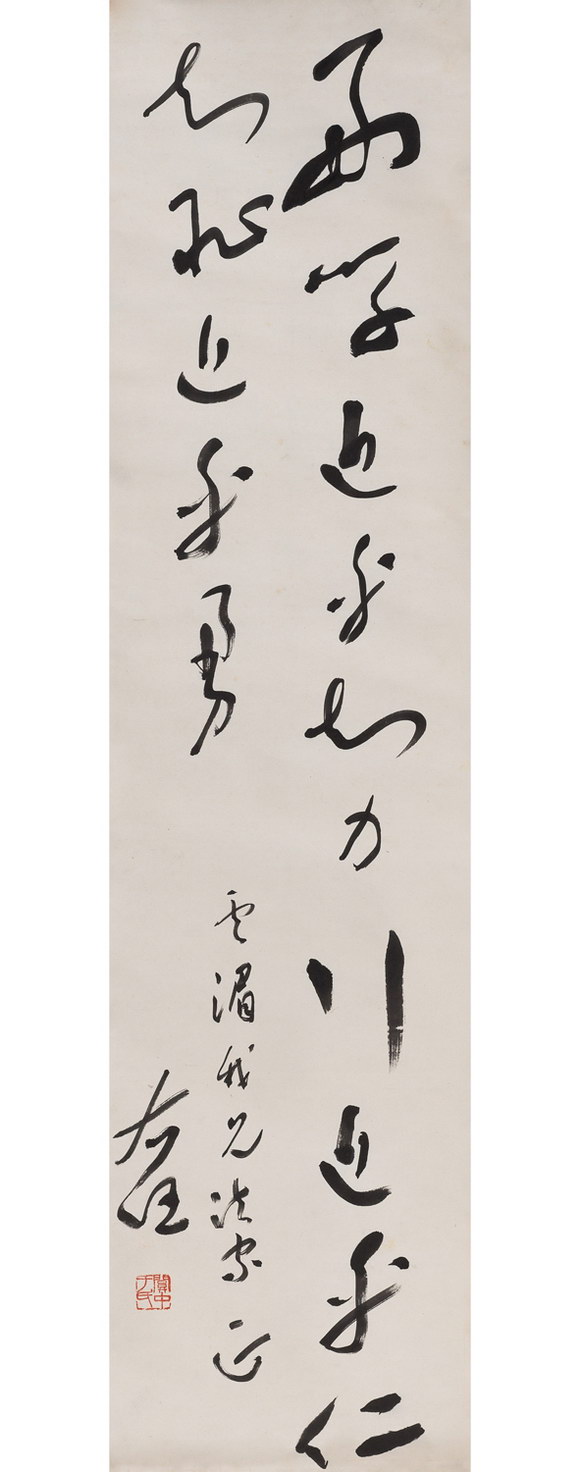 好学近乎知力行近乎仁
知耻近乎勇
云湄我兄法家正
右任
關中于氏